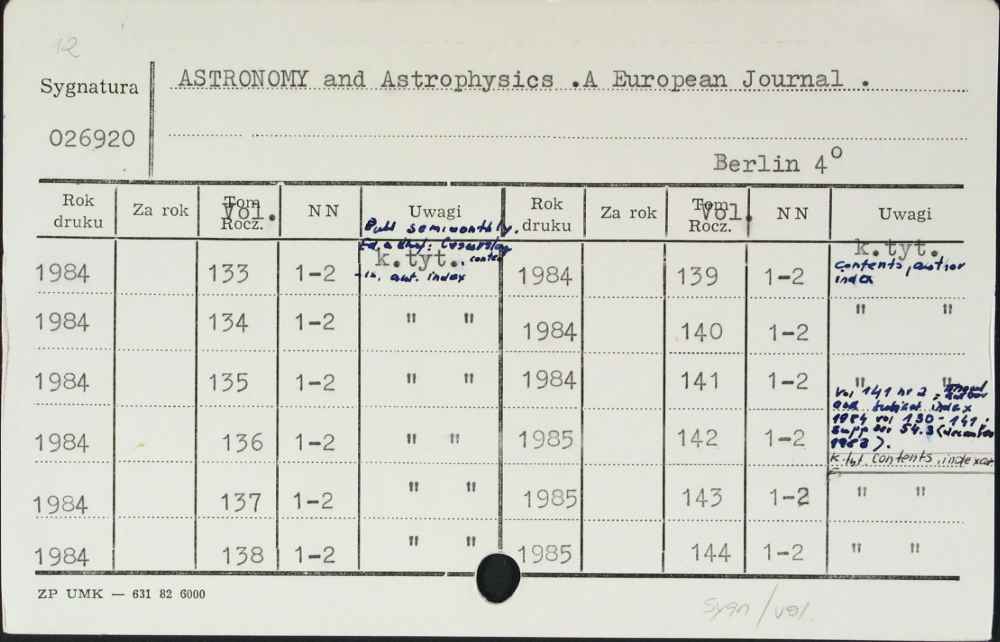 12
Sygnatura ASTRONOMY and Astrophysics .A European Journal .
026920
Berlin 4°
Rok druku Za rok Tom Rocz. Vol. NN Uwagi Rok druku Za rok Tom Rocz. Vol. NN Uwagi
Publ semimonthly.
k.tyt.
aut. index
1984 133 1-2
1984 134 1-2 " "
1984 135 1-2 " "
1984 136 1-2 " "
1984 137 1-2 " "
1984 138 1-2 " "
k.tyt.
contents, author
index
1984 139 1-2
1984 140 1-2 " "
1984 141 1-2 " "
vol 141 nr 2,
index
1984 vol 130-141.
1985 142 1-2
k.tyt contents, index
1985 143 1-2 " "
1985 144 1-2 " "
ZP UMK — 631 82 6000
sygn/vol.